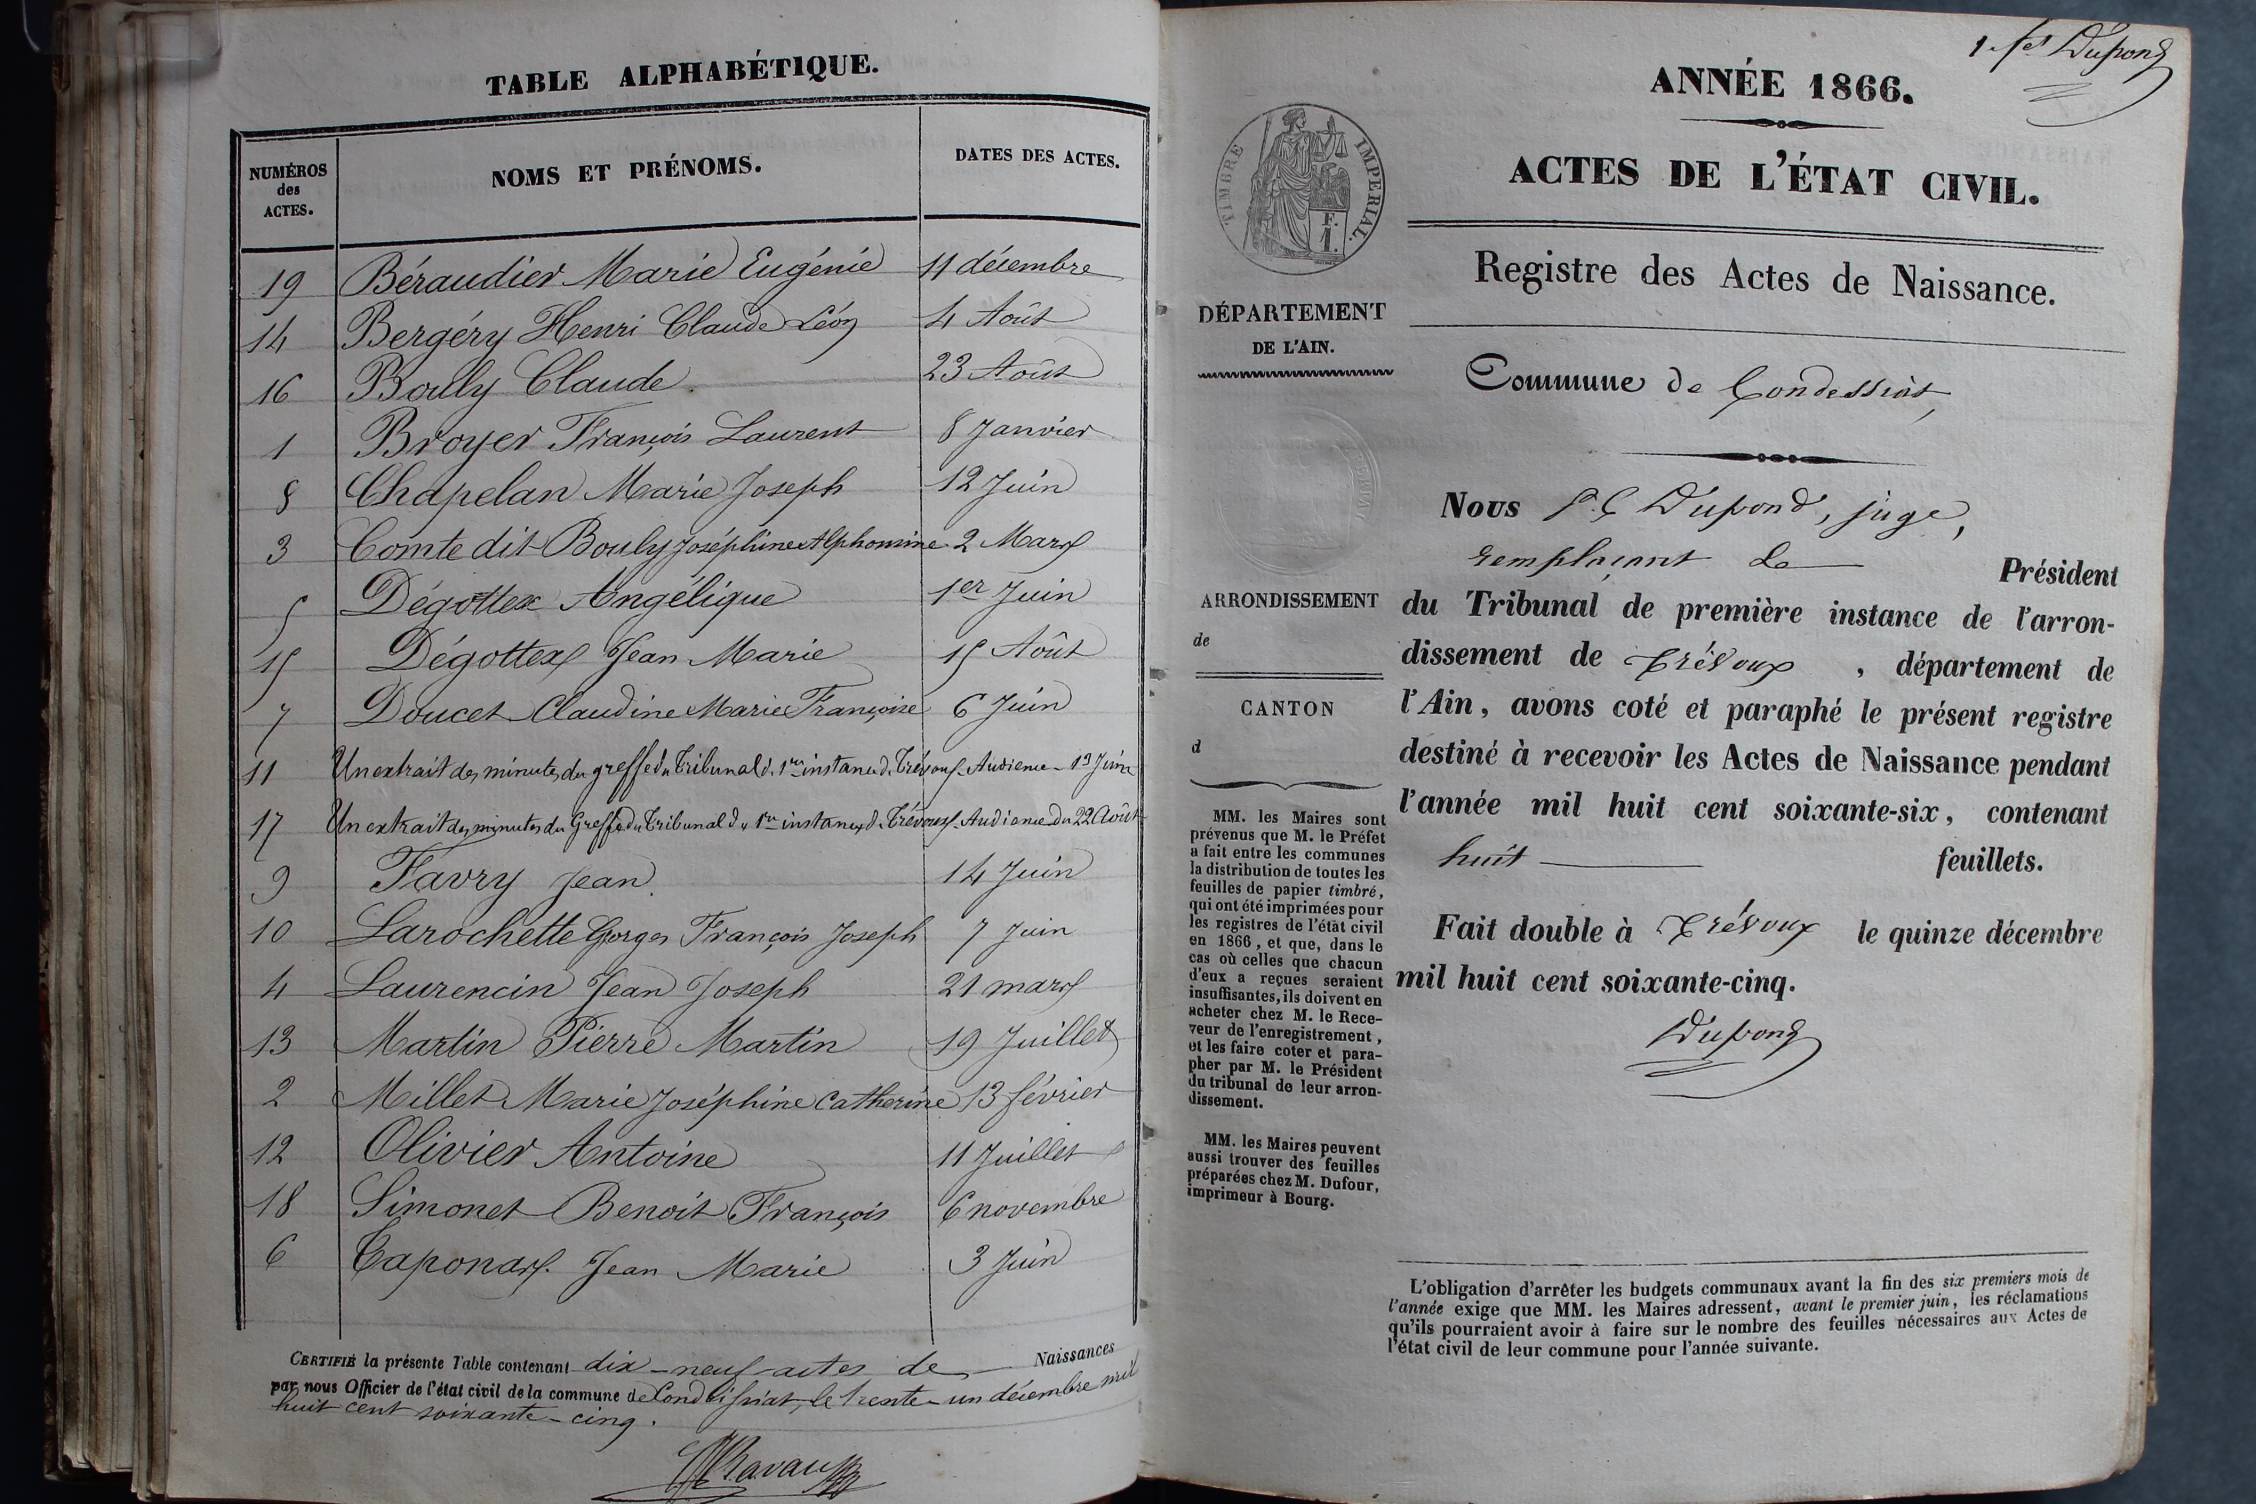 TABLE ALPHABÉTIQUE.
NUMÉROS des ACTES. NOMS ET PRÉNOMS. DATES DES ACTES.
19 Béraudier Marie Eugénie 11 décembre
14 Bergéry Henri Claude Léon 4 Août
16 Bouly Claude 23 Août
1 Broyer François Laurent 8 Janvier
8 Chapelan Marie Joseph 12 Juin
3 Comte dit Bouly Joséphine Alphonsine 2 Mars
5 Dégottex Angélique 1er Juin
15 Dégottex Jean Marie 15 Août
7 Doucet Claudine Marie Françoise 6 Juin
11 Un extrait des minutes du greffe du Tribunal de 1re instance de Trévoux Audience 19 Juin
17 Un extrait des minutes du Greffe du Tribunal de 1re instance de Trévoux Audience du 22 Août
9 Favry Jean 14 Juin
10 Larochette Georges François Joseph 7 Juin
4 Laurencin Jean Joseph 21 mars
13 Martin Pierre Martin 19 Juillet
2 Millet Marie Joséphine Catherine 13 février
12 Olivier Antoine 11 Juillet
18 Simonet Benoit François 6 novembre
6 Taponas Jean Marie 3 Juin
CERTIFIÉ la présente Table contenant dix-neuf actes de Naissances
par nous Officier de l'état civil de la commune de Condeissiat, le trente-un décembre mil
huit cent soixante-cinq.
1er fet Dupond
ANNÉE 1866.
ACTES DE L'ÉTAT CIVIL.
TIMBRE IMPERIAL.
F.
1.
Registre des Actes de Naissance.
DÉPARTEMENT
DE L'AIN.
Commune de Condessiat,
Nous P. C Dupond, juge,
remplaçant le Président
ARRONDISSEMENT
de
CANTON
d
du Tribunal de première instance de l'arron-
dissement de Trévoux, département de
l'Ain, avons coté et paraphé le présent registre
destiné à recevoir les Actes de Naissance pendant
l'année mil huit cent soixante-six, contenant
huit feuillets.
Fait double à Trévoux le quinze décembre
mil huit cent soixante-cinq.
Dupond
MM. les Maires sont
prévenus que M. le Préfet
a fait entre les communes
la distribution de toutes les
feuilles de papier timbré,
qui ont été imprimées pour
les registres de l'état civil
en 1866, et que, dans le
cas où celles que chacun
d'eux a reçues seraient
insuffisantes, ils doivent en
acheter chez M. le Rece-
veur de l'enregistrement,
et les faire coter et para-
pher par M. le Président
du tribunal de leur arron-
dissement.
MM. les Maires peuvent
aussi trouver des feuilles
préparées chez M. Dufour,
imprimeur à Bourg.
L'obligation d'arrêter les budgets communaux avant la fin des six premiers mois de
l'année exige que MM. les Maires adressent, avant le premier juin, les réclamations
qu'ils pourraient avoir à faire sur le nombre des feuilles nécessaires aux Actes de
l'état civil de leur commune pour l'année suivante.